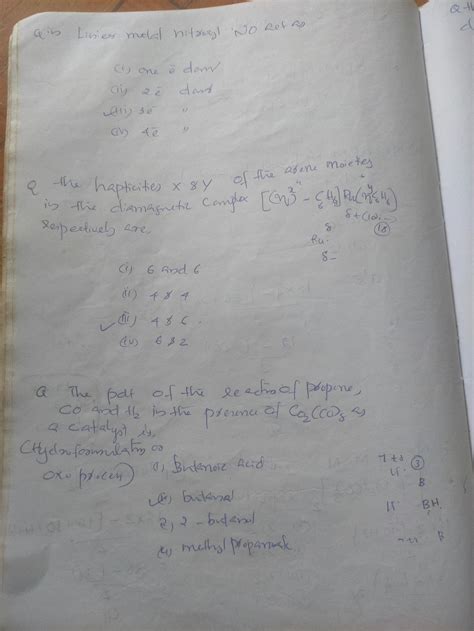 Q in Linier metal nitrosyl NO act as
(i) one ē donr
(ii) 2ē donr
(iii) 3ē "
(iv) 4ē "
Q the hapticities x & y of the arene moietes
in the diamagnetic complex [(η) - C6H6) Ru(η C6H6
respectively are
8
18
Ru
8
(i) 6 and 6
(ii) 4 & 4
(iii) 4 & 6
(iv) 6 & 2
Q The pdt of the reactn of propene,
CO and H2 in the presence of Co2(CO)8 as
a catalyst is,
(Hydroformulation or
oxo process)
(i) Butanoic acid
3
(ii) butanal
2, 2-butanol
(iv) methyl propanoate